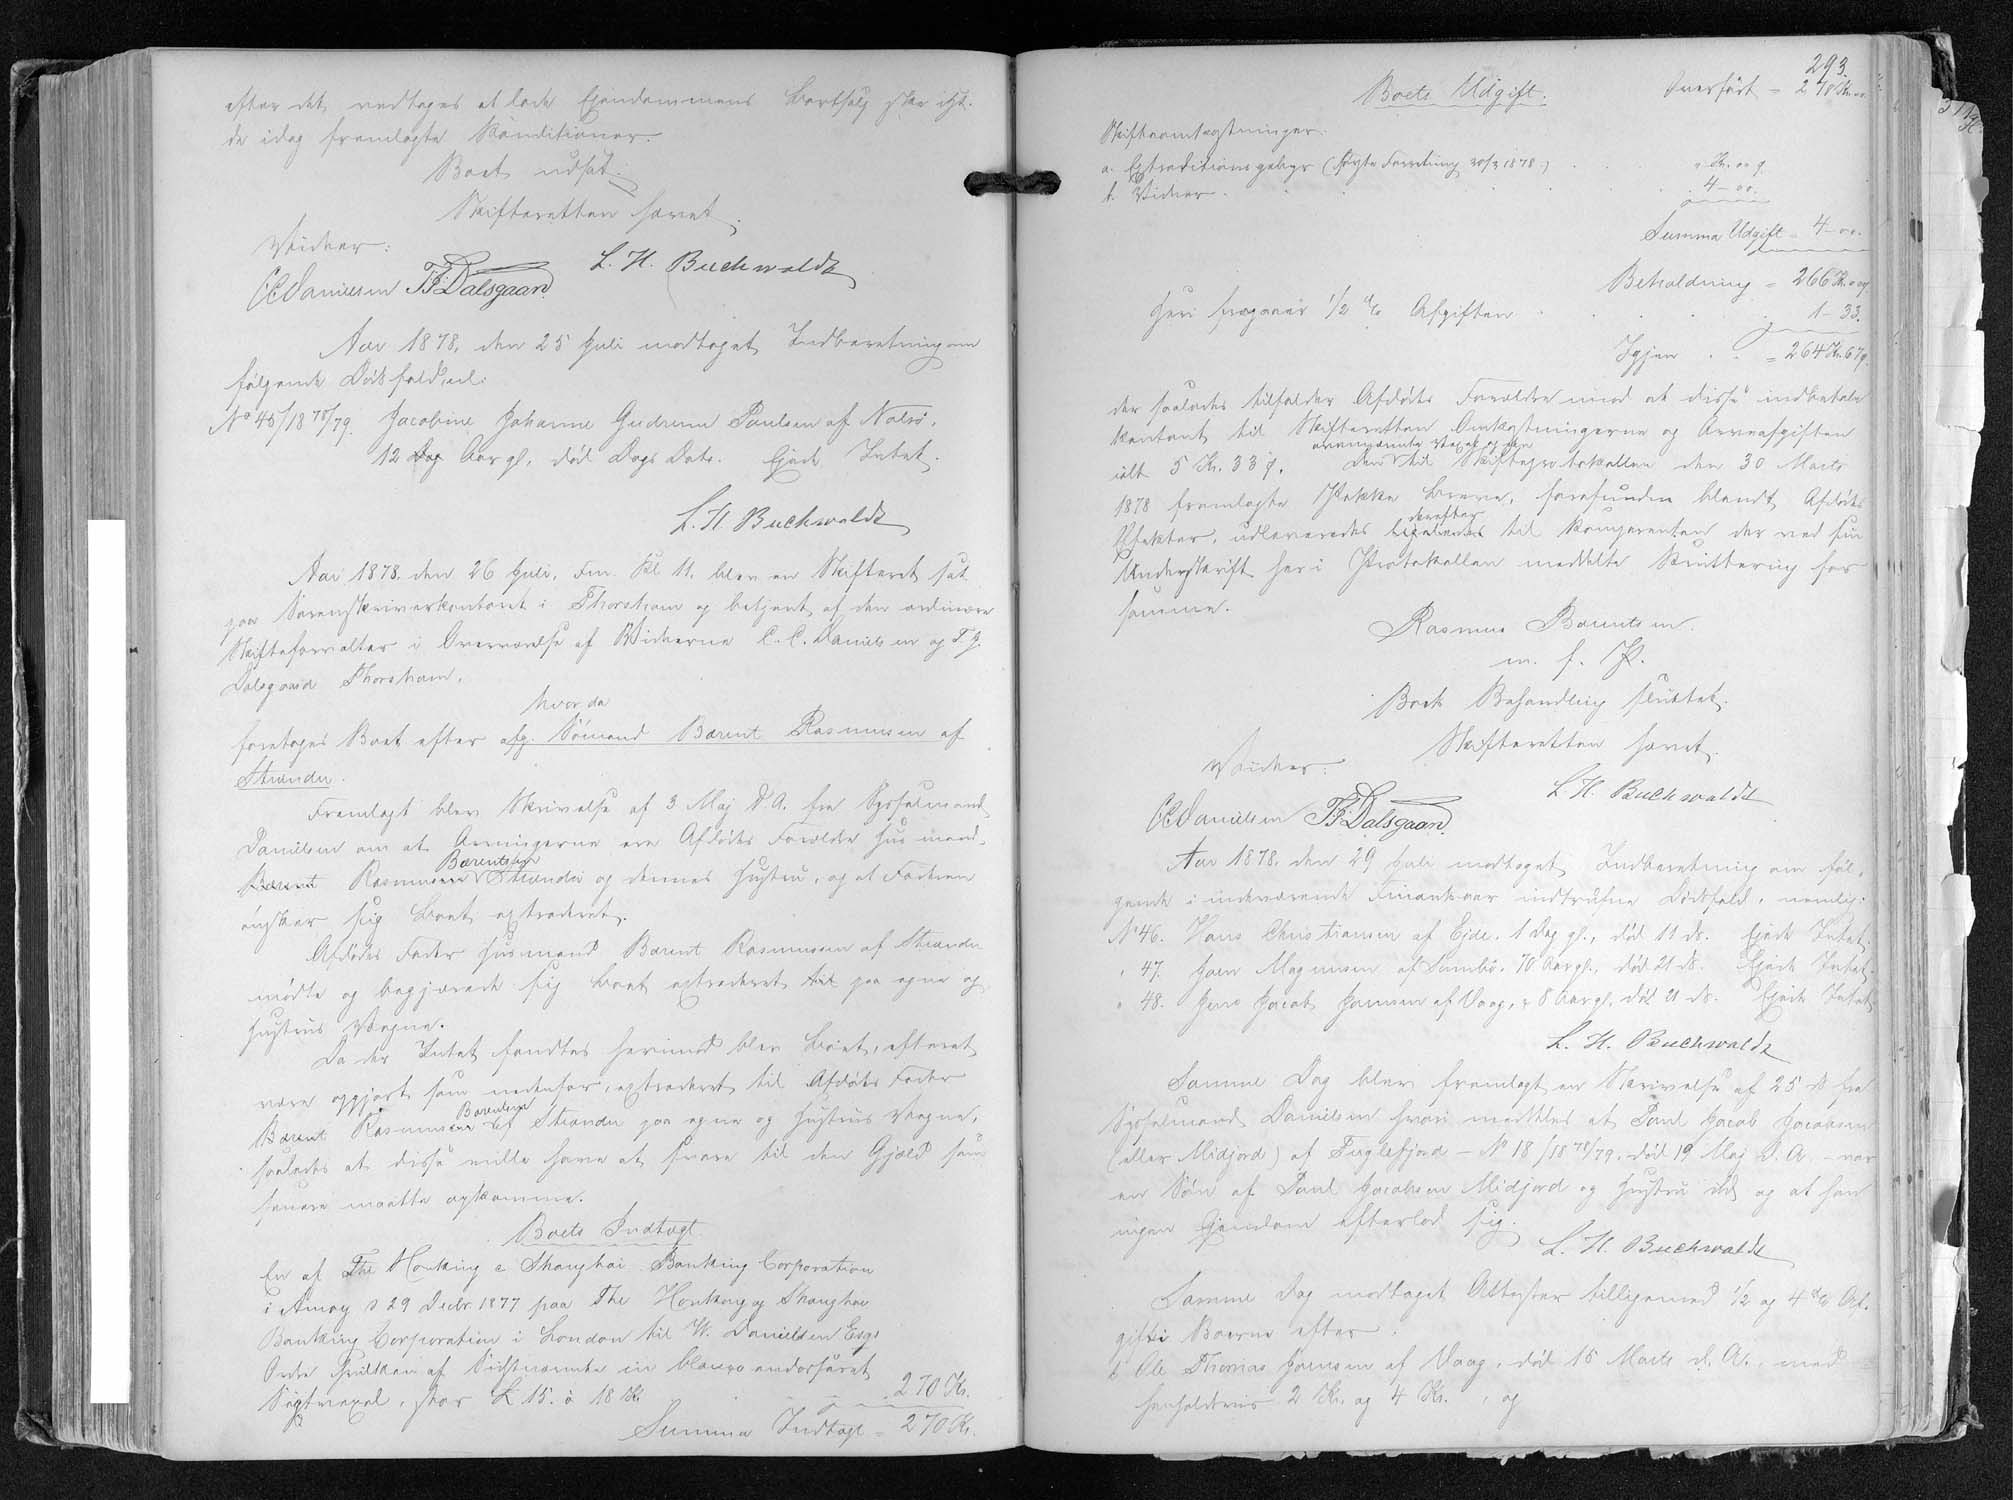 efter det vedtoges at lade Ejendommens Bortsalg ske iflt.
de idag fremlagte Konditioner.
Boet udsat.
Skifteretten hævet.
Vidner:
CCDanielsen TJDalsgaard L. H. Buchwaldt
Aar 1878, den 25 Juli modtaget Indberetning om
følgende Dødsfald, nl:
No 45/18 78/79. Jacobine Johanne Gudrun Paulsen af Nolsø,
12 Dag Aar gl., død Dags Dato. Ejede Intet.
L. H. Buchwaldt
Aar 1878, den 26 Juli, Fm. Kl 11, blev en Skifteret sat
paa Sorenskriverkontoret i Thorshavn og betjent af den ordinære
Skifteforvalter i Overværelse af Vidnerne C. C. Danielsen og T. J.
Dalsgaard Thorshavn,
hvor da
foretoges Boet efter afg. Sømand Barent Rasmussen af
Strænder.
Fremlagt blev Skrivelse af 3 Maj d. A. fra Sysselmand
Danielsen om at Arvingerne ere Afdødes Forældre Husmand
Barent Rasmussen Barentsen Strænder og dennes Hustru, og at Faderen
ønsker sig Boet extraderet.
Afdødes Fader Husmand Barent Rasmussen af Strænder
mødte og begjærede sig Boet extraderet paa egne og
Hustrus Vegne.
Da der Intet fandtes herimod blev Boet, efterat
være opgjort som nedenfor, extraderet til Afdødes Fader
Barent Rasmussen Barentsen af Strænder paa egne og Hustrus Vegne,
saaledes at disse ville have at svare til den Gjæld som
senere maatte opkomme.
Boets Indtægt
En af The Honking & Shanghai Banking Corporation
i Amoy d 29 Decbr. 1877 paa The Honkong og Shanghai
Banking Corporation i London til W. Danielsen Esqs
Ordre af Sidstnævnte in blanco endosseret
Sigtvexel, stor £ 15. à 18 Kr. 270 Kr.
Summa Indtægt = 270 Kr.
293.
Boets Udgift. Overført = 270 Kr. oo
Skifteomkostninger:
a. Extraditionsgebyr (Forretning 30/3 1878) " Kr. oo ø
b. Vidner 4 - oo.
Summa Udgift = 4 - oo.
Beholdning = 266 Kr. oo ø
Heri fragaaer 1/2 % Afgiften 1 - 33.
Igjen = 264 Kr. 67 ø.
der saaledes tilfalder Afdødes Forældre mod at disse indbetale
kontant til Skifteretten Omkostningerne og Arveafgiften
ialt 5 Kr. 33 ø. Den ovennævnte Vexel og den til Skifteprotokollen den 30 Marts
1878 fremlagte Pakke Breve, forefunden blandt Afdødes
Effekter, udleveredes derefter til Komparenten der ved sin
Underskrift her i Protokollen meddelte Kvittering for
samme.
Rasmus Barentsen.
m. f. P.
Boets Behandling sluttet.
Skifteretten hævet.
Vidner:
CCDanielsen TJDalsgaard. L. H. Buchwaldt
Aar 1878, den 29 Juli modtaget Indberetning om føl-
gende i indeværende Finantsaar indtrufne Dødsfald, nemlig:
No 46. Hans Christiansen af Ejde, 1 Dag gl., død 11 ds. Ejede Intet.
" 47. Joen Magnusen af Sumbø, 70 Aar gl., død 21 ds. Ejede Intet.
" 48. Jens Jacob Joensen af Vaag, 8 Aar gl., død 21 ds. Ejede Intet
L. H. Buchwaldt
Samme Dag blev fremlagt en Skrivelse af 25 ds fra
Sysselmand Danielsen hvori meddeles at Paul Jacob Jacobsen
(eller Midjord) af Fuglefjord - No 18/18 78/79, død 19 Maj d. A. - var
en Søn af Paul Jacobsen Midjord og Hustru og at han
ingen Ejendom efterlod sig.
L. H. Buchwaldt
Samme Dag modtaget Attester tilligemed 1/2 og 4 % Af-
gift i Boerne efter:
Ole Thomas Joensen af Vaag, død 15 Marts d. A., med
henholdsvis 2 Kr. og 4 Kr., og